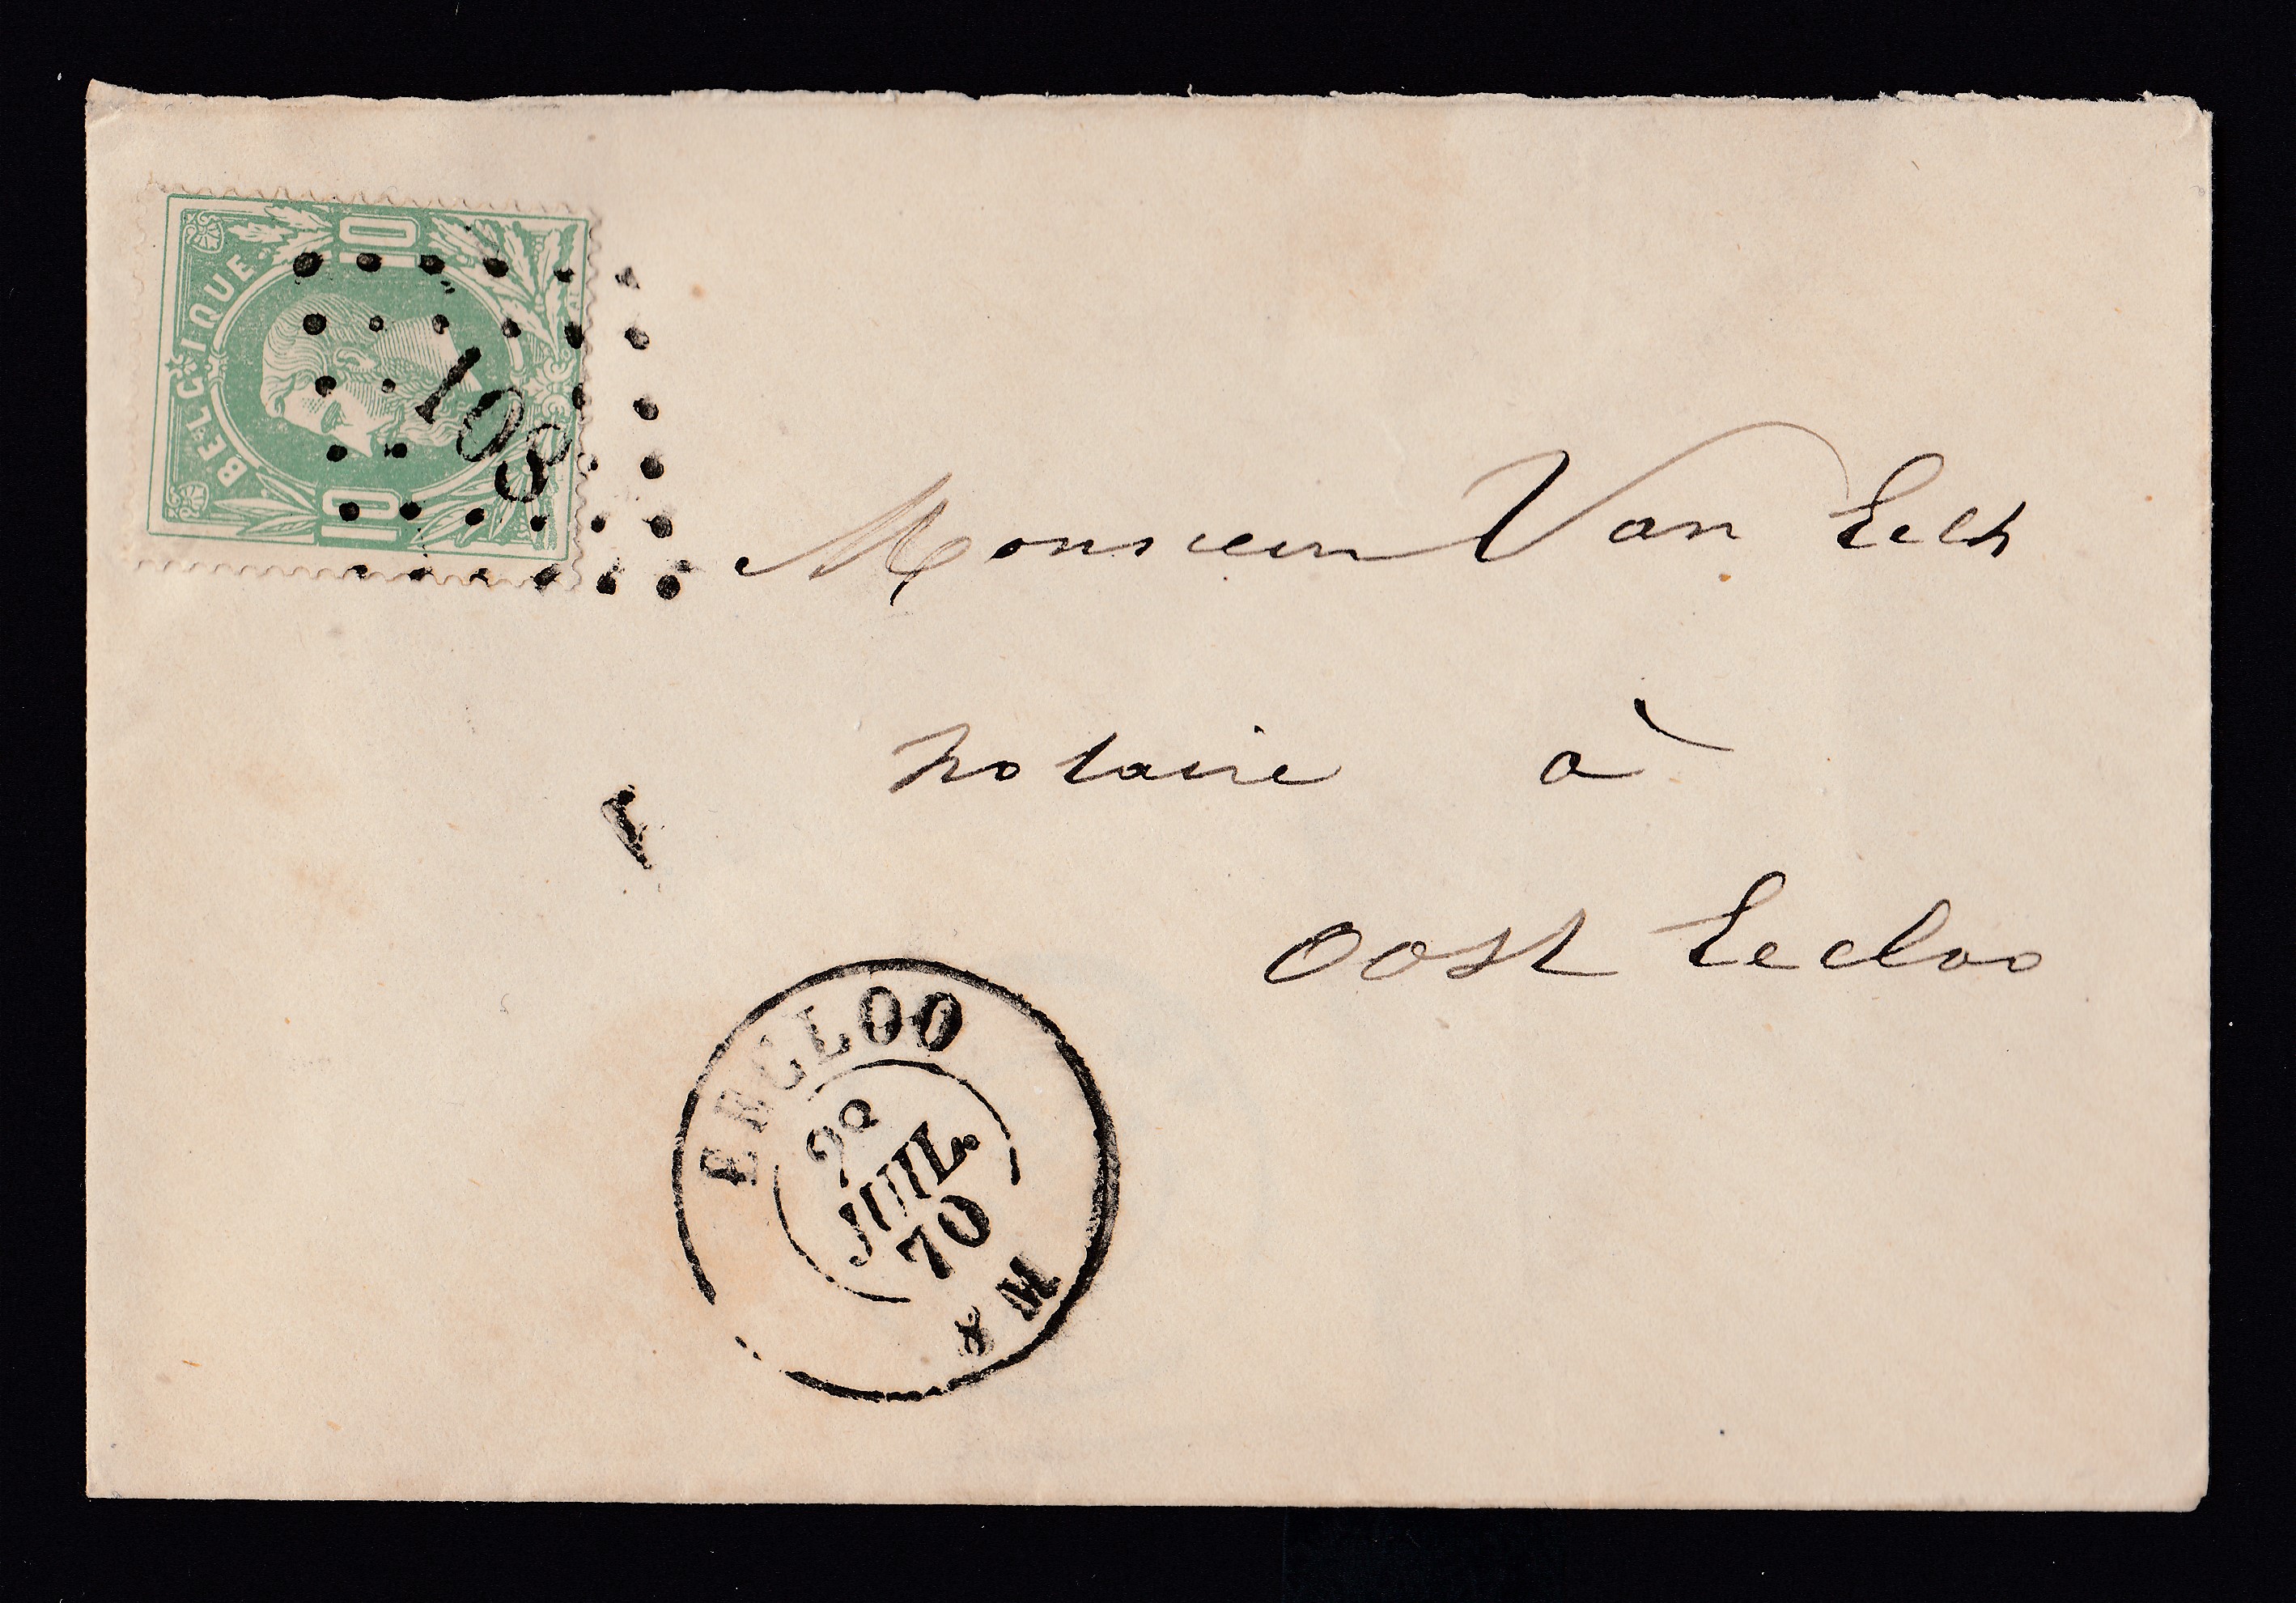 10
BELGIQUE
10
108
Monsieur Van Eech
notaire à
Oost Eecloo
1
EECLOO
JUIL.
70
M